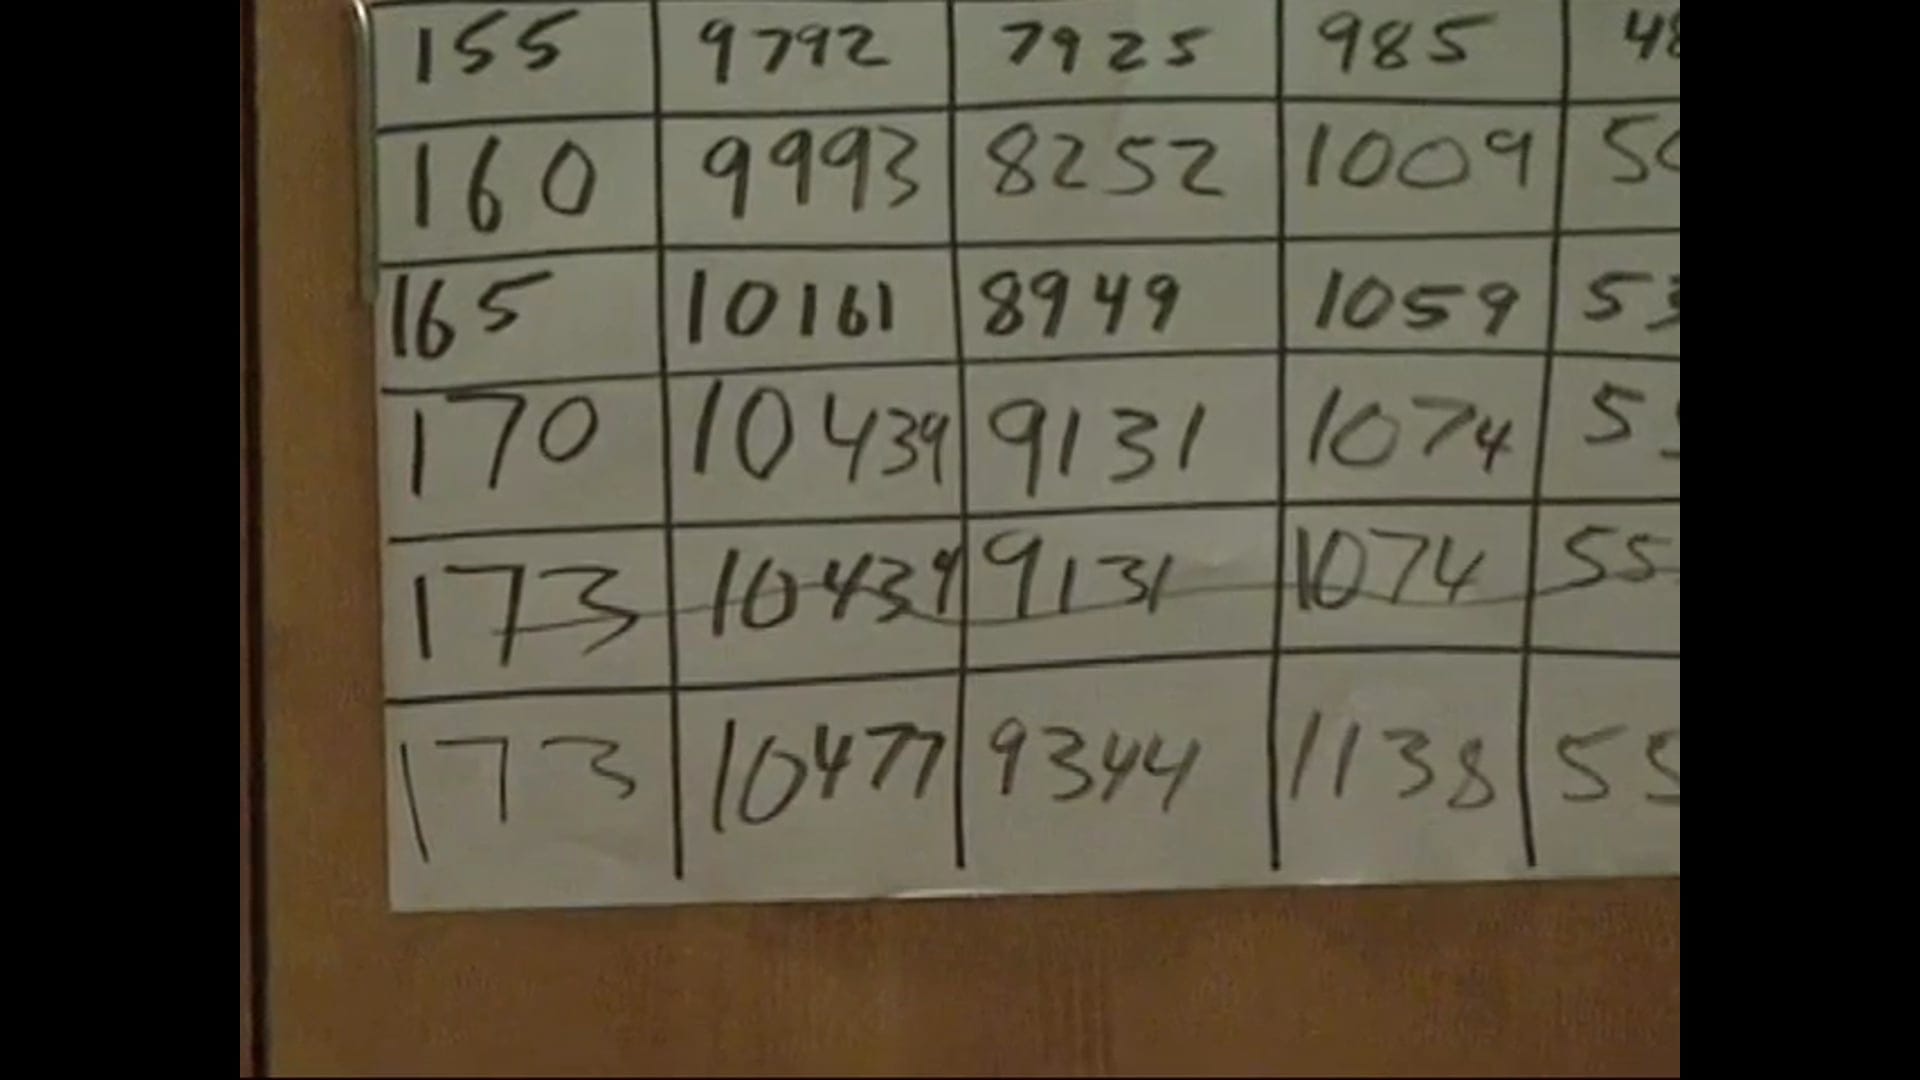 155 9792 7925 985 48
160 9993 8252 1009 50
165 10161 8949 1059 53
170 10439 9131 1074 55
173 10439 9131 1074 55
173 10477 9344 1138 55